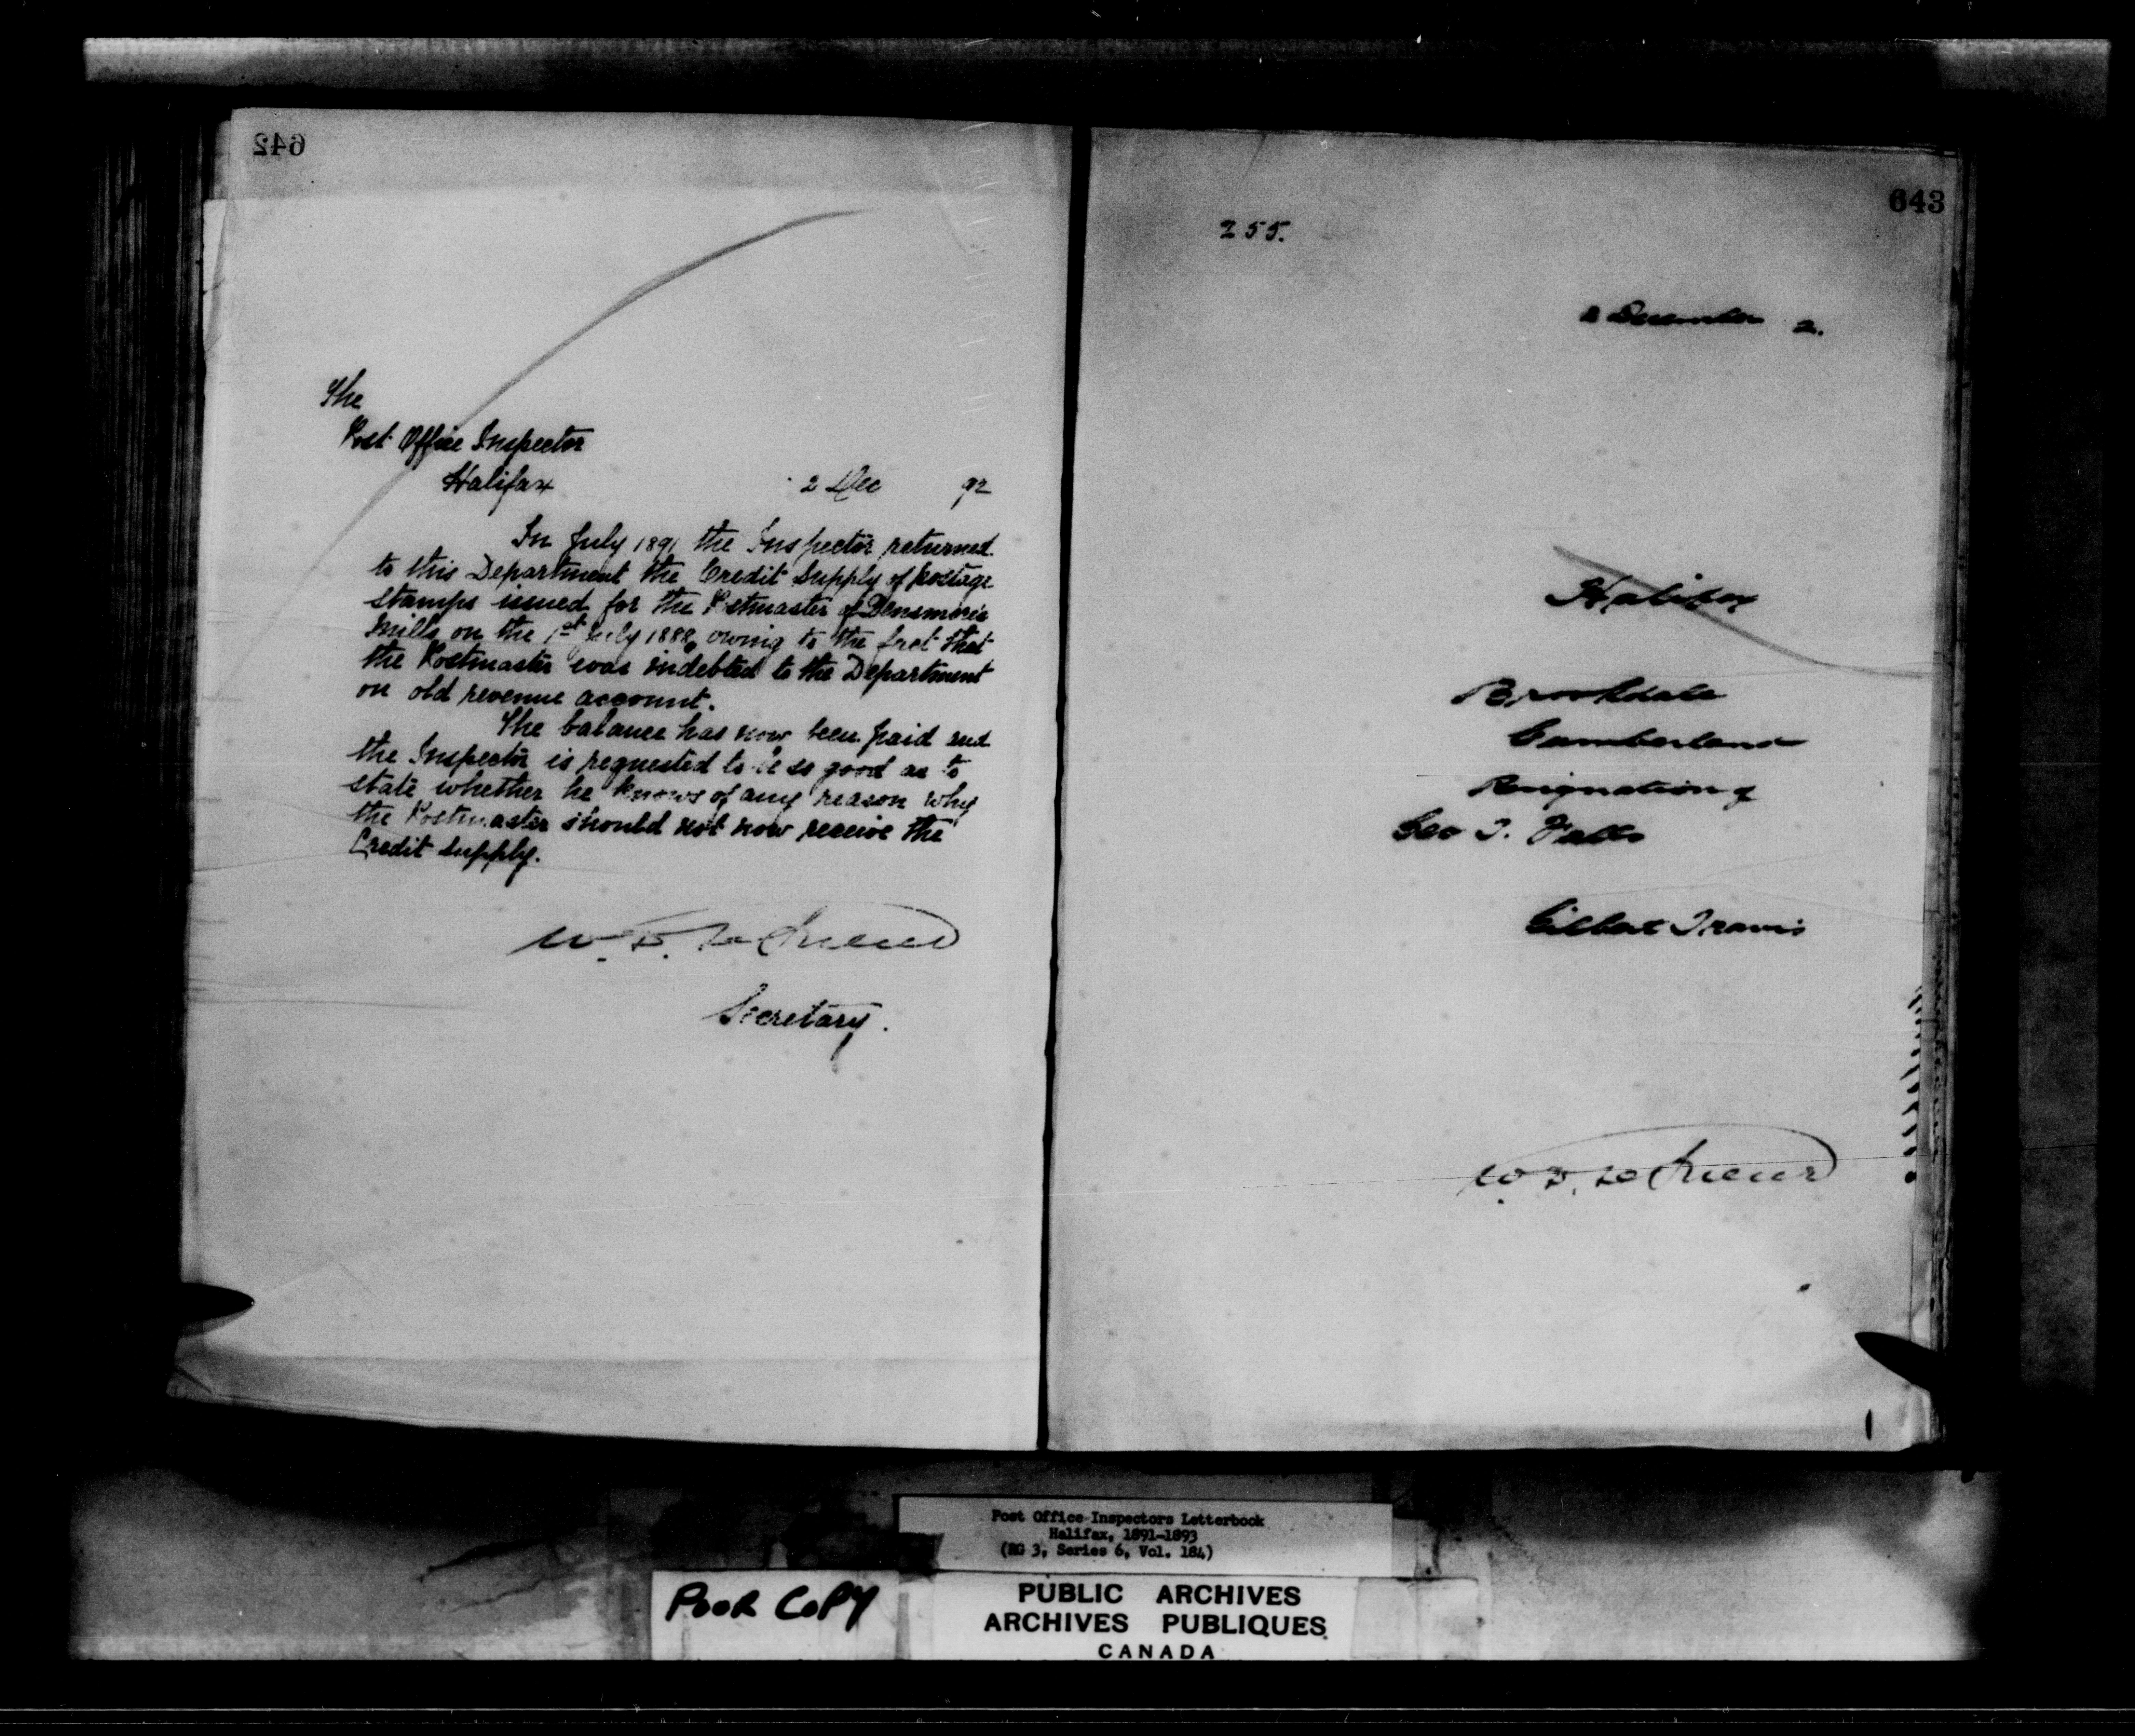 642
The
Post Office Inspector
Halifax
2 Dec 92
In July 1891 the Inspector returned
to this Department the Credit Supply of postage
stamps issued for the Postmaster of Densmore's
Mills on the 1st July 1888, owing to the fact that
the Postmaster was indebted to the Department
on old revenue account.
The balance has now been paid and
the Inspector is requested to be so good as to
state whether he knows of any reason why
the Postmaster should not now receive the
Credit supply.
Secretary.
643
255.
2 December 2.
Halifax
Brookdale
Cumberland
Resignation of
Geo T. Falls
Gilbert Travis
Post Office Inspectors Letterbook
Halifax, 1891-1893
(RG 3, Series 6, Vol. 184)
POOR COPY
PUBLIC ARCHIVES
ARCHIVES PUBLIQUES
CANADA